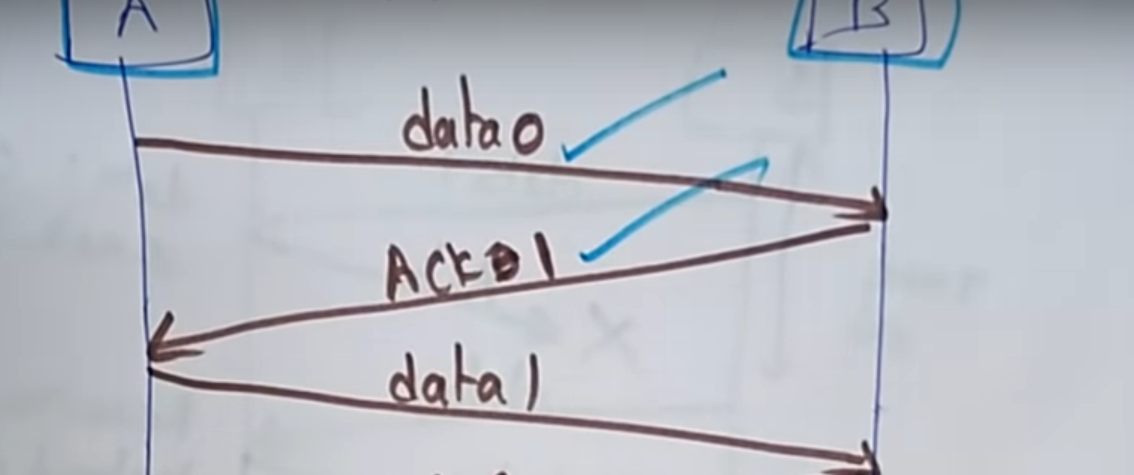 A
B
data 0
Ack 1
data 1